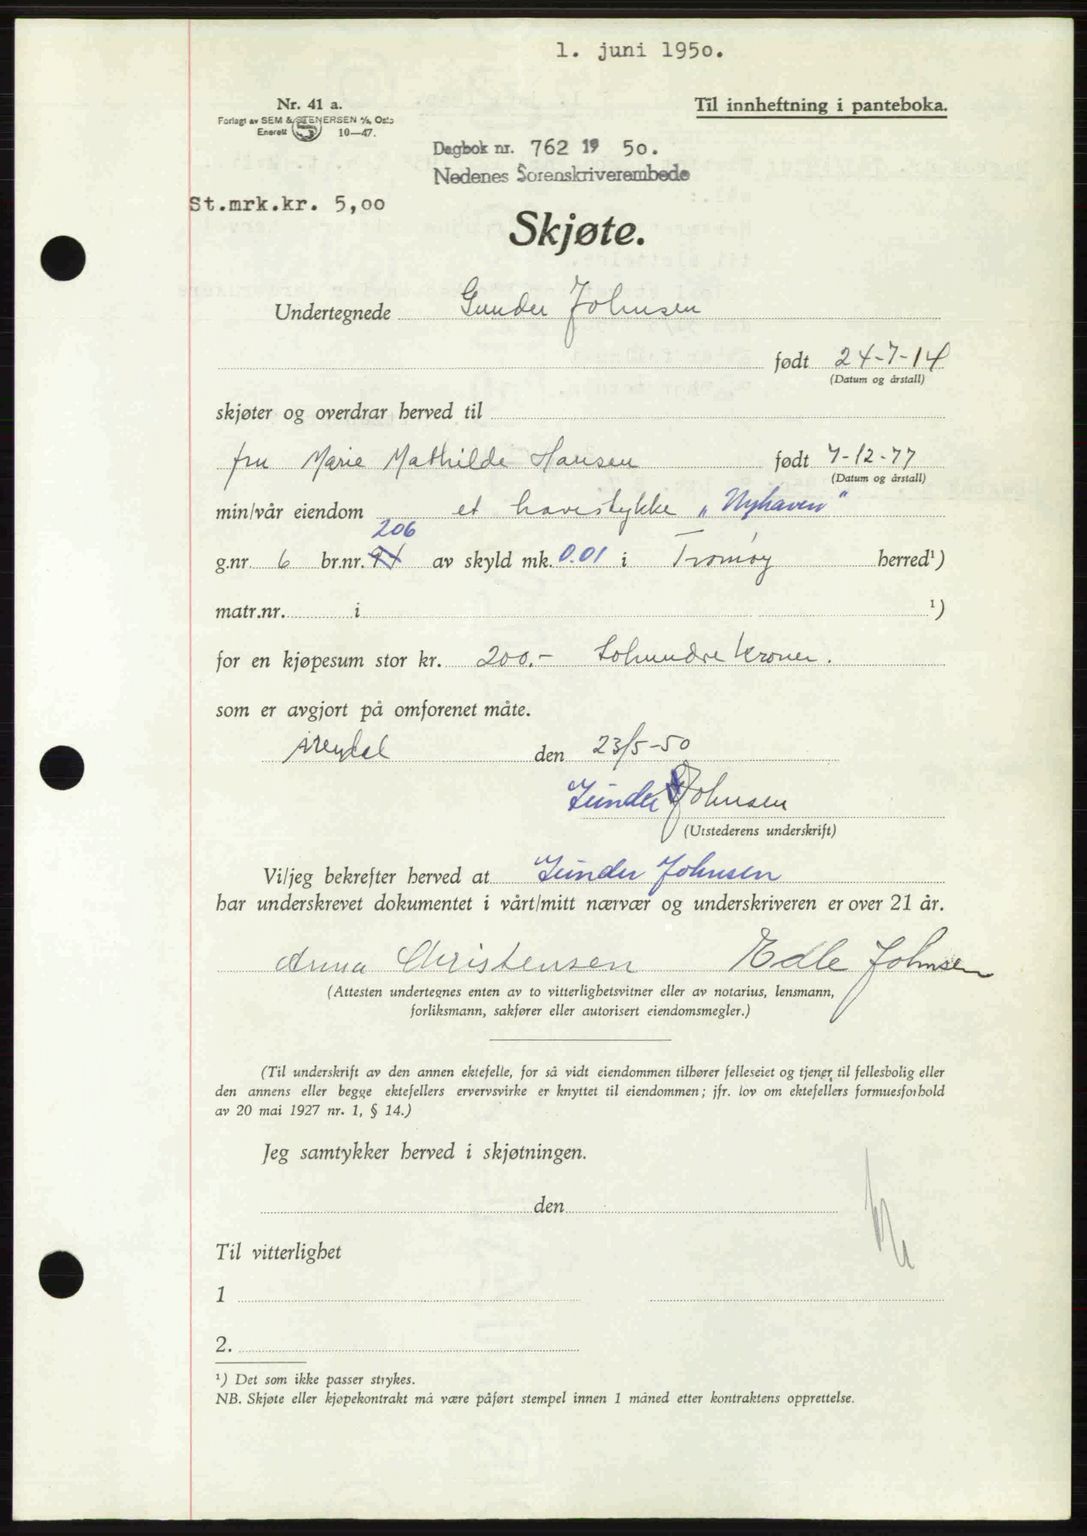 1. juni 1950.
Nr. 41 a.
Til innheftning i panteboka.
Forlagt av SEM & STENERSEN A/S, Oslo
Enerett 10—47.
Dagbok nr. 762 19 50.
Nedenes Sorenskriverembede
St.mrk.kr. 5,00
Skjøte.
Undertegnede Gunder Johnsen
født 24-7-14
(Datum og årstall)
skjøter og overdrar herved til
fru Marie Mathilde Hansen født 7-12-77
(Datum og årstall)
min/vår eiendom et havestykke „Nyhaven"
206
g.nr 6 br.nr. av skyld mk. 0.01 i Tromøy herred¹)
matr.nr. i ¹)
for en kjøpesum stor kr. 200.- tohundre kroner.
som er avgjort på omforenet måte.
Arendal den 23/5-50
Gunder Johnsen
(Utstederens underskrift)
Vi/jeg bekrefter herved at Gunder Johnsen
har underskrevet dokumentet i vårt/mitt nærvær og underskriveren er over 21 år.
Anna Christensen Edle Johnsen
(Attesten undertegnes enten av to vitterlighetsvitner eller av notarius, lensmann,
forliksmann, sakfører eller autorisert eiendomsmegler.)
(Til underskrift av den annen ektefelle, for så vidt eiendommen tilhører felleseiet og tjener til fellesbolig eller
den annens eller begge ektefellers ervervsvirke er knyttet til eiendommen; jfr. lov om ektefellers formuesforhold
av 20 mai 1927 nr. 1, § 14.)
Jeg samtykker herved i skjøtningen.
den
Til vitterlighet
1
2.
¹) Det som ikke passer strykes.
NB. Skjøte eller kjøpekontrakt må være påført stempel innen 1 måned etter kontraktens opprettelse.